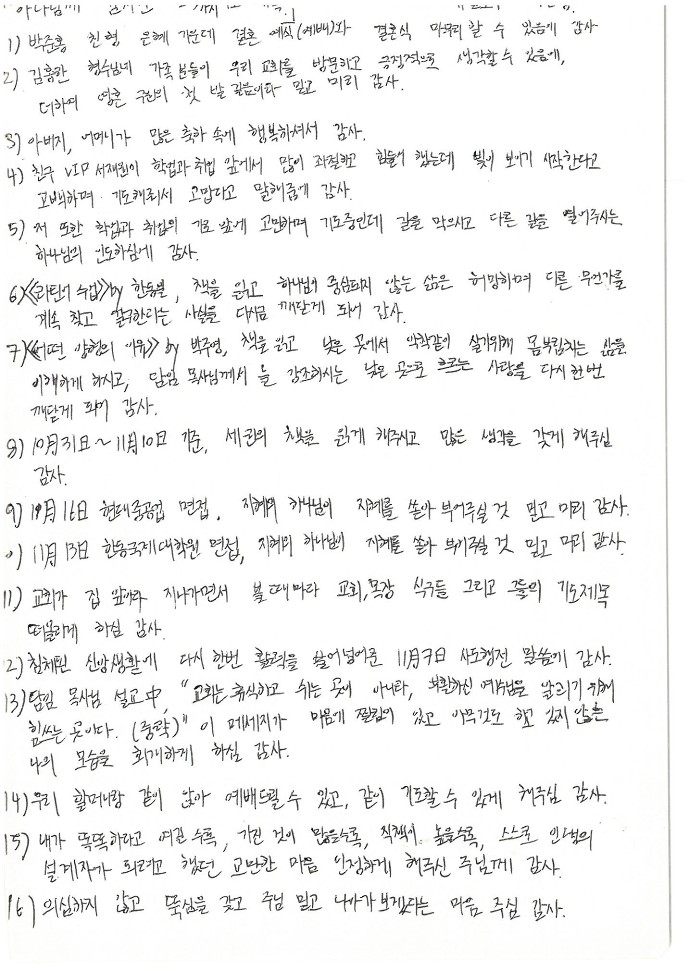 하나님께
1) 박준홍 친형 은혜 가운데 결혼 예식(예배)와 결혼식 마무리 할 수 있음에 감사
2) 김홍란 형수님네 가족분들이 우리 교회를 방문하고 긍정적으로 생각할 수 있음에,
더하여 영혼 구원의 첫 발 걸음이라 믿고 미리 감사.
3) 아버지, 어머니가 많은 축하 속에 행복하셔서 감사.
4) 친구 VIP 서재원이 학업과 취업 앞에서 많이 좌절하고 힘들어 했는데 빛이 보이기 시작한다고
고백하며 기도해줘서 고맙다고 말해줌에 감사.
5) 저 또한 학업과 취업의 기로 앞에 고민하며 기도중인데 길을 막으시고 다른 길을 열어주시는
하나님의 인도하심에 감사.
6) 《라틴어 수업》 by 한동일, 책을 읽고 하나님이 중심되지 않는 삶은 허망하며 다른 무언가를
계속 찾고 갈구한다는 사실을 다시금 깨닫게 되어 감사.
7) 《어떤 양형의 이유》 by 박주영, 책을 읽고 낮은 곳에서 악착같이 살기위해 몸부림치는 삶을
이해하게 하시고, 담임 목사님께서 늘 강조하시는 낮은 곳으로 흐르는 사랑을 다시 한번
깨닫게 되어 감사.
8) 10月 31日 ~ 11月 10日 기준, 세권의 책을 읽게 해주시고 많은 생각을 갖게 해주심
감사.
9) 10月 16日 현대중공업 면접, 지혜의 하나님이 지혜를 쏟아 부어주실 것 믿고 미리 감사.
0) 11月 13日 한동국제대학원 면접, 지혜의 하나님이 지혜를 쏟아 부어주실 것 믿고 미리 감사.
11) 교회가 집 앞이라 지나가면서 볼 때마다 교회, 목장 식구들 그리고 그들의 기도제목
떠올리게 하심 감사.
2) 침체된 신앙생활에 다시 한번 활력을 불어넣어준 11月 7日 사도행전 말씀에 감사.
13) 담임 목사님 설교中, "교회는 휴식하고 쉬는 곳이 아니라, 부활하신 예수님을 알리기 위해
힘쓰는 곳이다. (중략)" 이 메세지가 마음에 찔림이 있고 아무것도 하고 있지 않은
나의 모습을 회개하게 하심 감사.
14) 우리 할머니랑 같이 앉아 예배드릴 수 있고, 같이 기도할 수 있게 해주심 감사.
15) 내가 똑똑하다고 여길 수록, 가진 것이 많을수록, 직책이 높을수록, 스스로 인생의
설계자가 되려고 했던 교만한 마음 인정하게 해주신 주님께 감사.
16) 의심하지 않고 뚝심을 갖고 주님 믿고 나아가 보겠다는 마음 주심 감사.